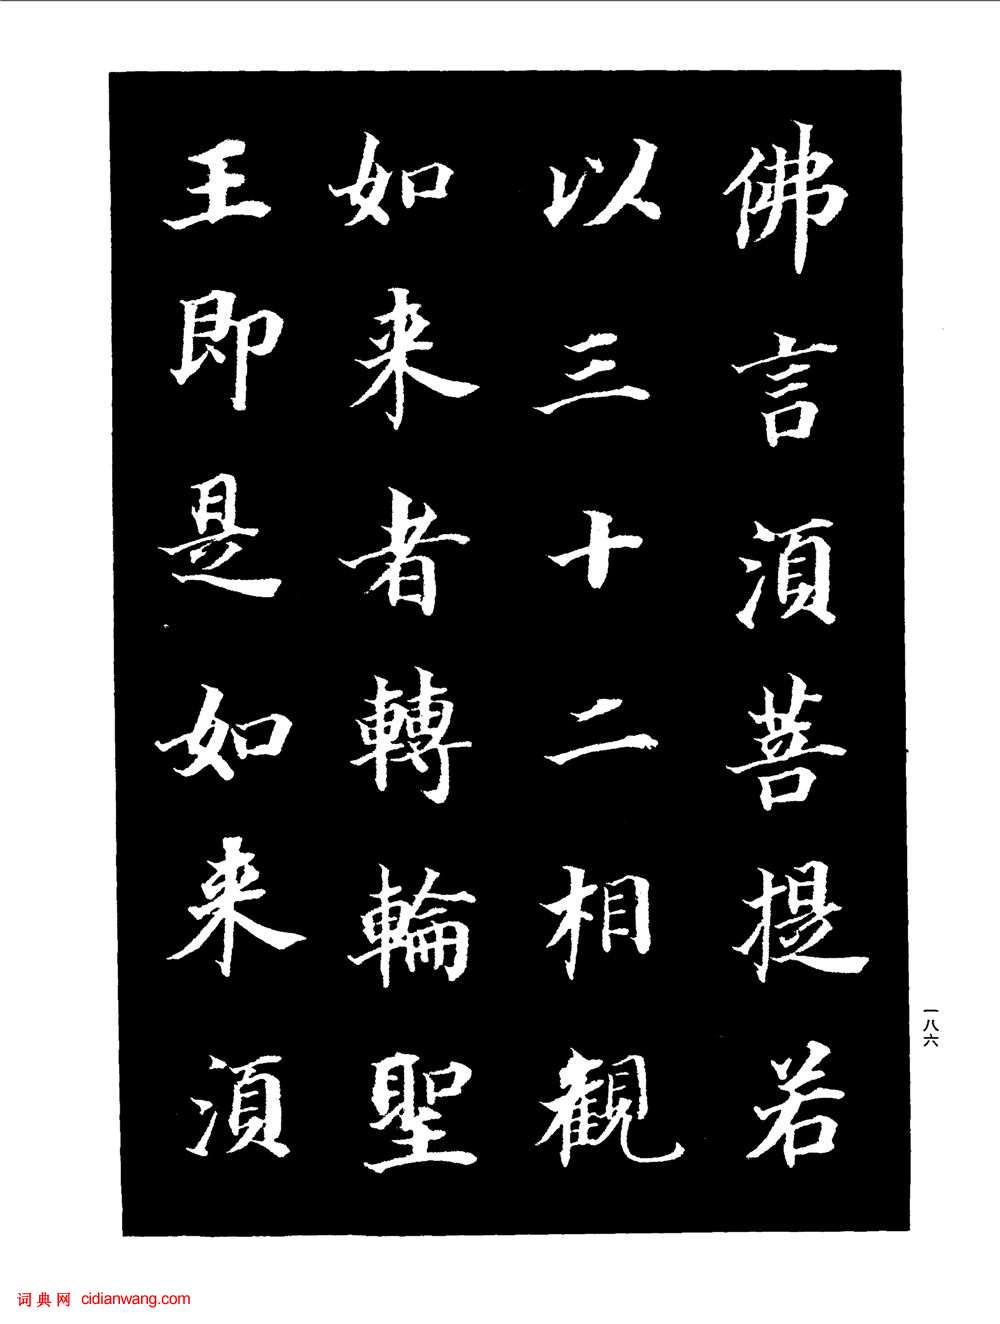 佛言湏菩提若
以三十二相觀
如来者轉輪聖
王即是如来湏
一八六
词典网 cidianwang.com